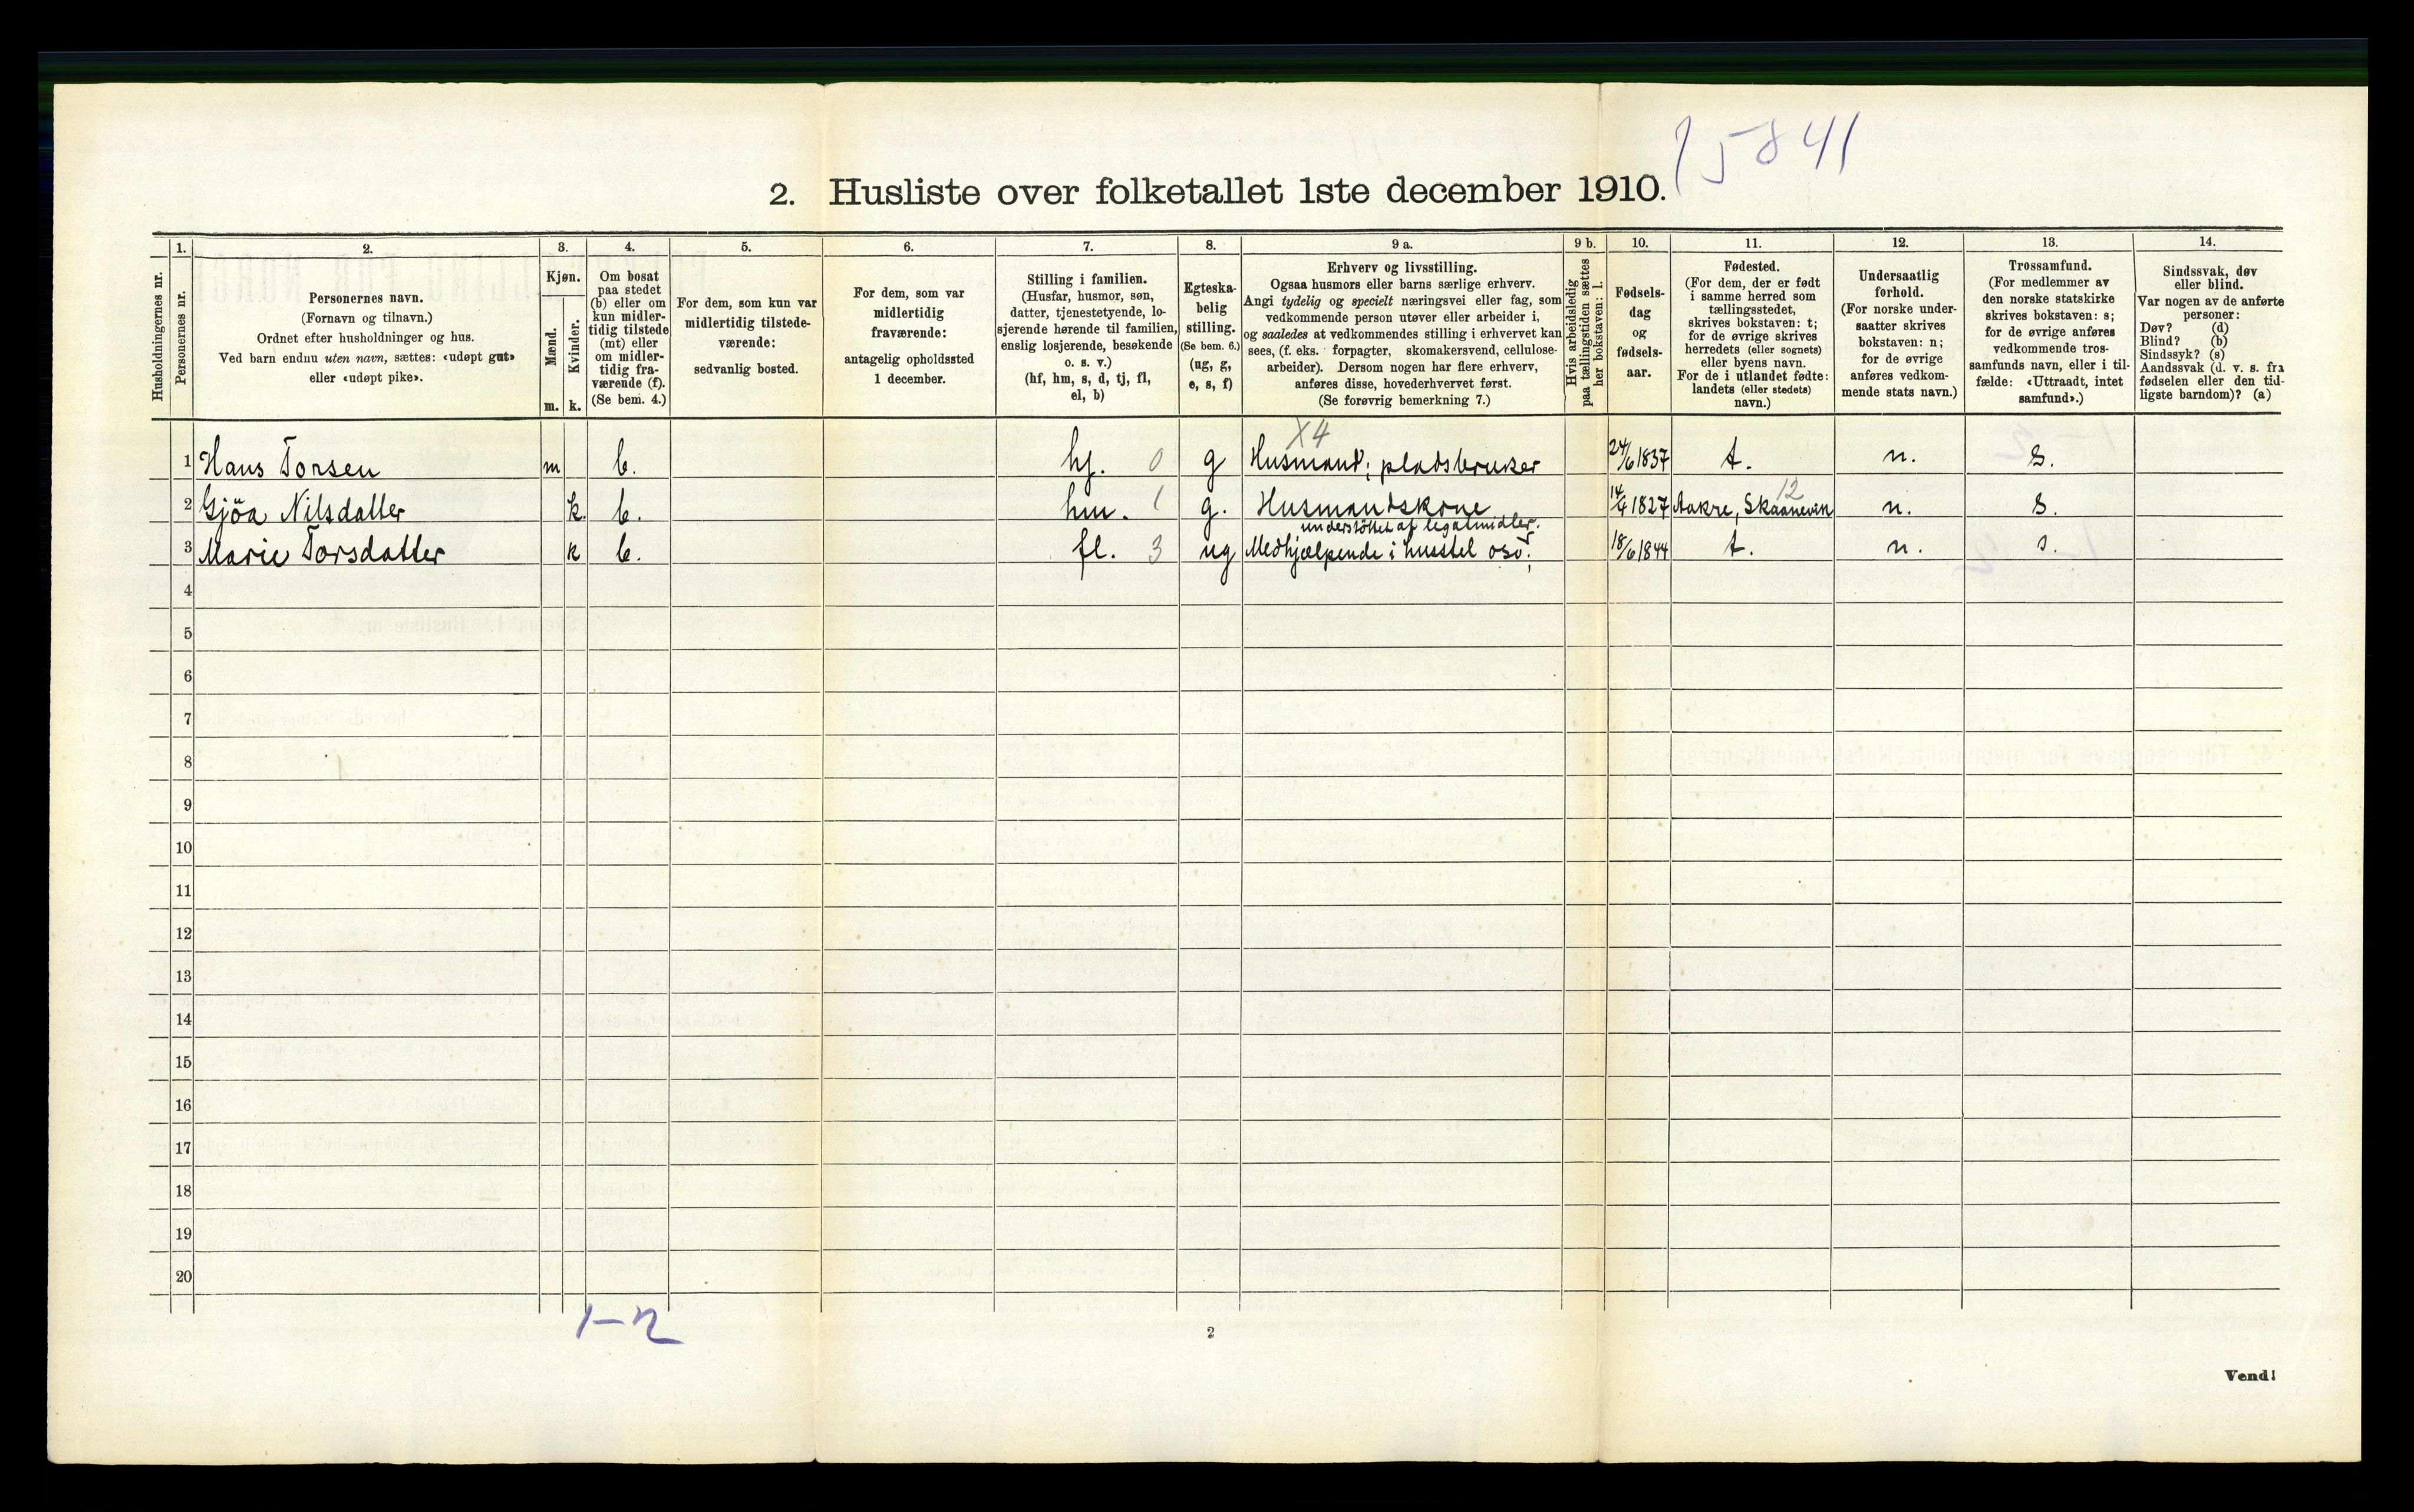 15841
2. Husliste over folketallet 1ste december 1910.
Husholdningernes nr.
1.
Personernes nr.
2.
Personernes navn.
(Fornavn og tilnavn.)
Ordnet efter husholdninger og hus.
Ved barn endnu uten navn, sættes: «udøpt gut»
eller «udøpt pike».
3.
Kjøn.
Mænd.
Kvinder.
m. k.
4.
Om bosat
paa stedet
(b) eller om
kun midler-
tidig tilstede
(mt) eller
om midler-
tidig fra-
værende (f).
(Se bem. 4.)
5.
For dem, som kun var
midlertidig tilstede-
værende:
sedvanlig bosted.
6.
For dem, som var
midlertidig
fraværende:
antagelig opholdssted
1 december.
7.
Stilling i familien.
(Husfar, husmor, søn,
datter, tjenestetyende, lo-
sjerende hørende til familien,
enslig losjerende, besøkende
o. s. v.)
(hf, hm, s, d, tj, fl,
el, b)
8.
Egteska-
belig
stilling.
(Se bem. 6.)
(ug, g,
e, s, f)
9 a.
Erhverv og livsstilling.
Ogsaa husmors eller barns særlige erhverv.
Angi tydelig og specielt næringsvei eller fag, som
vedkommende person utøver eller arbeider i,
og saaledes at vedkommendes stilling i erhvervet kan
sees, (f. eks. forpagter, skomakersvend, cellulose-
arbeider). Dersom nogen har flere erhverv,
anføres disse, hovederhvervet først.
(Se forøvrig bemerkning 7.)
9 b.
Hvis arbeidsledig
paa tællingstiden sættes
her bokstaven: l.
10.
Fødsels-
dag
og
fødsels-
aar.
11.
Fødested.
(For dem, der er født
i samme herred som
tællingsstedet,
skrives bokstaven: t;
for de øvrige skrives
herredets (eller sognets)
eller byens navn.
For de i utlandet fødte:
landets (eller stedets)
navn.)
12.
Undersaatlig
forhold.
(For norske under-
saatter skrives
bokstaven: n;
for de øvrige
anføres vedkom-
mende stats navn.)
13.
Trossamfund.
(For medlemmer av
den norske statskirke
skrives bokstaven: s;
for de øvrige anføres
vedkommende tros-
samfunds navn, eller i til-
fælde: «Uttraadt, intet
samfund».)
14.
Sindssvak, døv
eller blind.
Var nogen av de anførte
personer:
Døv? (d)
Blind? (b)
Sindssyk? (s)
Aandssvak (d. v. s. fra
fødselen eller den tid-
ligste barndom)? (a)
X4
1 Hans Torsen m b. hf. 0 g Husmand; pladsbruker 24/6 1837 t. n. s.
12
2 Gjöa Nilsdatter k. b. hm. 1 g. Husmandskone 14/4 1827 Aakre, Skaanevik n. s.
understöttet af legatmidler.
3 Marie Torsdatter k b. fl. 3 ug Medhjælpende i husstel osv; 18/6 1844 t. n. s.
4
5
6
7
8
9
10
11
12
13
14
15
16
17
18
19
20
1-2
2
Vend!